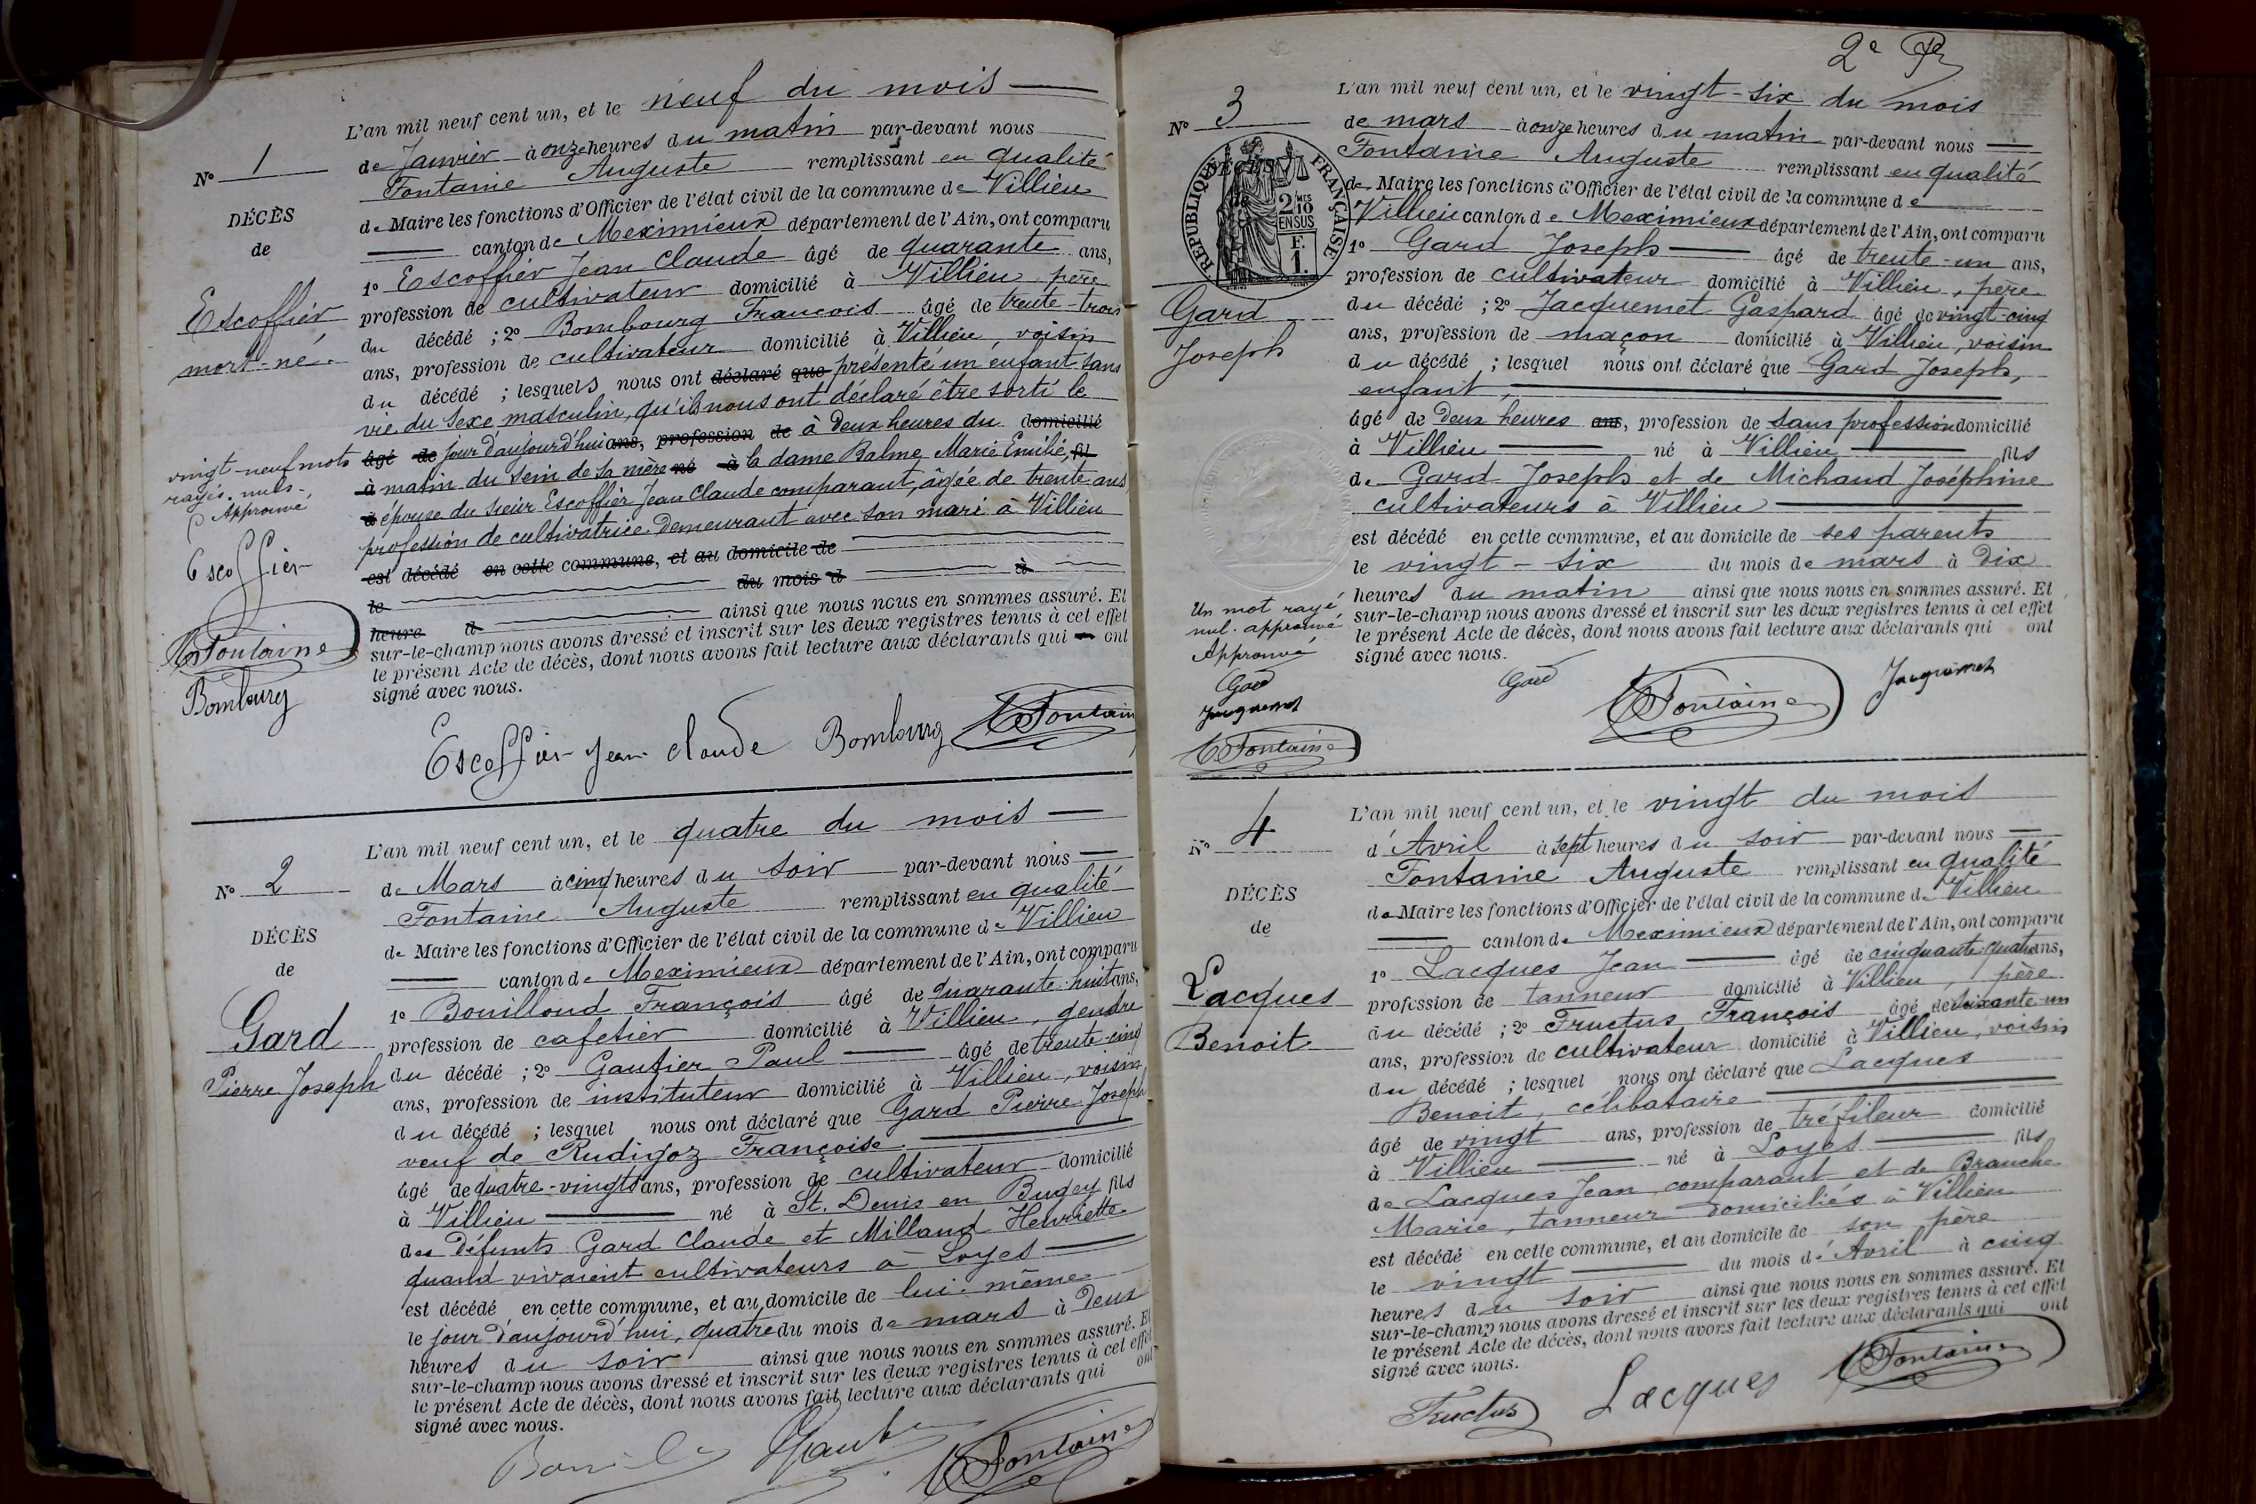 L'an mil neuf cent un, et le neuf du mois
de Janvier à onze heures du matin par-devant nous
Fontaine Auguste remplissant en qualité
de Maire les fonctions d'Officier de l'état civil de la commune de Villieu
canton de Meximieux département de l'Ain, ont comparu
1º Escoffier Jean Claude âgé de quarante ans,
profession de cultivateur domicilié à Villieu, père
du décédé ; 2º Bombourg François âgé de trente-trois
ans, profession de cultivateur domicilié à Villieu, voisin
du décédé ; lesquels nous ont déclaré que présenté un enfant sans
vie du sexe masculin, qu'ils nous ont déclaré être sorti le
âgé de jour d'aujourd'hui ans, profession de à deux heures du domicilié
à matin du sein de sa mère né à la dame Balme Marie Emélie, fil
d épouse du sieur Escoffier Jean Claude comparant, âgée de trente ans
profession de cultivatrice demeurant avec son mari à Villieu
est décédé en cette commune, et au domicile de
le du mois d à
heure d ainsi que nous nous en sommes assuré. Et
sur-le-champ nous avons dressé et inscrit sur les deux registres tenus à cet effet
le présent Acte de décès, dont nous avons fait lecture aux déclarants qui ont
signé avec nous.
Escoffier Jean Claude Bombourg Fontaine
Nº 1
DÉCÈS
de
Escoffier
mort-né.
vingt-neuf mots
rayés nuls.
Approuvé
Escoffier
Fontaine
Bombourg
Nº 2
DÉCÈS
de
Gard
Pierre Joseph
L'an mil neuf cent un, et le quatre du mois
de Mars à cinq heures du soir par-devant nous
Fontaine Auguste remplissant en qualité
de Maire les fonctions d'Officier de l'état civil de la commune de Villieu
canton de Meximieux département de l'Ain, ont comparu
1º Bouilloud François âgé de quarante-huit ans,
profession de cafetier domicilié à Villieu, gendre
du décédé ; 2º Gautier Paul âgé de trente-cinq
ans, profession de instituteur domicilié à Villieu, voisin
du décédé ; lesquel nous ont déclaré que Gard Pierre Joseph
veuf de Rudigoz Françoise
âgé de quatre-vingts ans, profession de cultivateur domicilié
à Villieu né à St. Denis en Bugey fils
des défunts Gard Claude et Milland Henriette
quand vivaient cultivateurs à Loyes
est décédé en cette commune, et au domicile de lui-même
le jour d'aujourd'hui, quatre du mois de mars à deux
heures du soir ainsi que nous nous en sommes assuré. Et
sur-le-champ nous avons dressé et inscrit sur les deux registres tenus à cet effet
le présent Acte de décès, dont nous avons fait lecture aux déclarants qui ont
signé avec nous.
Fontaine
2e
Nº 3
RÉPUBLIQUE FRANÇAISE
DÉCÈS
de
2/10 MES
EN SUS
F.
1.
Gard
Joseph
L'an mil neuf cent un, et le vingt-six du mois
de mars à onze heures du matin par-devant nous
Fontaine Auguste remplissant en qualité
de Maire les fonctions d'Officier de l'état civil de la commune de
Villieu canton de Meximieux département de l'Ain, ont comparu
1º Gard Joseph âgé de trente-un ans,
profession de cultivateur domicilié à Villieu, père
du décédé ; 2º Jacquemet Gaspard âgé de vingt-cinq
ans, profession de maçon domicilié à Villieu, voisin
du décédé ; lesquel nous ont déclaré que Gard Joseph,
enfant,
âgé de deux heures ans, profession de sans profession domicilié
à Villieu né à Villieu fils
de Gard Joseph et de Michaud Joséphine
cultivateurs à Villieu
est décédé en cette commune, et au domicile de ses parents
le vingt-six du mois de mars à dix
heures du matin ainsi que nous nous en sommes assuré. Et
sur-le-champ nous avons dressé et inscrit sur les deux registres tenus à cet effet
le présent Acte de décès, dont nous avons fait lecture aux déclarants qui ont
signé avec nous.
Gard Fontaine Jacquemet
Un mot rayé
nul. approuvé
Approuvé
Gard
Jacquemet
Fontaine
Nº 4
DÉCÈS
de
Lacques
Benoit
L'an mil neuf cent un, et le vingt du mois
d'Avril à sept heures du soir par-devant nous
Fontaine Auguste remplissant en qualité
de Maire les fonctions d'Officier de l'état civil de la commune de Villieu
canton de Meximieux département de l'Ain, ont comparu
1º Lacques Jean âgé de cinquante-quatre ans,
profession de tanneur domicilié à Villieu, père
du décédé ; 2º Fructus François âgé de soixante-un
ans, profession de cultivateur domicilié à Villieu, voisin
du décédé ; lesquel nous ont déclaré que Lacques
Benoit, célibataire
âgé de vingt ans, profession de tréfileur domicilié
à Villieu né à Loyes fils
de Lacques Jean comparant et de Branche
Marie, tanneur domiciliés à Villieu
est décédé en cette commune, et au domicile de son père
le vingt du mois d'Avril à cinq
heures du soir ainsi que nous nous en sommes assuré. Et
sur-le-champ nous avons dressé et inscrit sur les deux registres tenus à cet effet
le présent Acte de décès, dont nous avons fait lecture aux déclarants qui ont
signé avec nous.
Fructus Lacques Fontaine